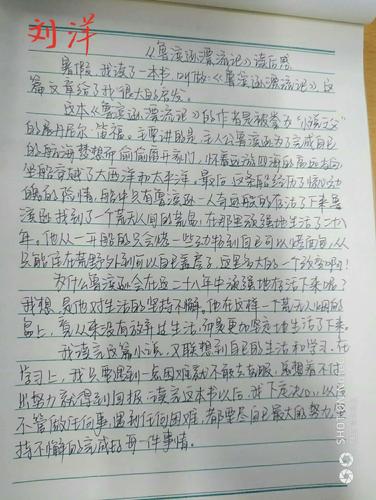 刘洋
《鲁滨逊漂流记》读后感
暑假,我读了一本书,叫做《鲁滨逊漂流记》这
篇文章给了我很大的启发。
这本《鲁滨逊漂流记》的作者是被誉为“小说之父”
的丹尼尔·笛福。主要讲的是主人公鲁滨逊为了完成自己
的航海梦想而偷偷离开家门,怀着远游四海的高远志向
坐船穿越了大西洋和太平洋。最后,这条船经历了惊心动
魄的险情,船中只有鲁滨逊一人奇迹般的存活了下来鲁
滨逊找到了一个荒无人间的荒岛,在那里顽强地生活了二十八
年。他从一开始的只会
只能住在荒野外到可以自己盖房子,这是多大的一个改变啊!
为什么鲁滨逊会在这二十八年中顽强地存活下来呢?
我想,是他对生活的坚持不懈。他在这样一个荒无人烟的
岛上,有从来没有放弃过生活,而是更加坚定地生活了下来。
我读完这篇小说,又联想到自己的生活和学习,在
学习上,我只要遇到一点困难就不敢去克服,总想着不付
出努力就得到回报,读完这本书以后,我下定决心,以后
不管做任何事,遇到任何困难,都要尽自己最大的努力,坚
持不懈的完成好每一件事情。
SHOT ON